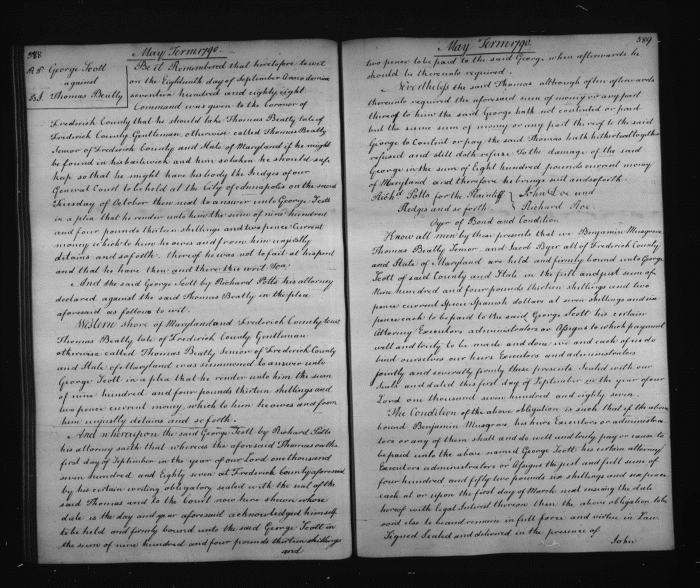 588
May Term 1790.
R P George Scott
against
B I Thomas Beatty
Be it Remembered that heretofore to wit
on the Eighteenth day of September Anno domini
seventeen hundred and eighty eight
Command was given to the Coroner of
Frederick County that he should take Thomas Beatty late of
Frederick County Gentleman otherwise called Thomas Beatty
Senior of Frederick County and State of Maryland if he might
be found in his bailiwick and him so taken he should safe
keep so that he might have his body the Judges of our
General Court to be held at the City of Annapolis on the second
Tuesday of October then next to answer unto George Scott
in a plea that he render unto him the sum of nine hundred
and four pounds thirteen shillings and two pence Current
money which to him he owes and from him unjustly
detains and so forth. thereof he was not to fail at his peril
and that he have then and there this writ &ca
And the said George Scott by Richard Potts his attorney
declared against the said Thomas Beatty in the plea
aforesaid as follows to wit.
Western shore of Maryland and Frederick County to wit
Thomas Beatty late of Frederick County Gentleman
otherwise called Thomas Beatty Senior of Frederick County
and State of Maryland was summoned to answer unto
George Scott in a plea that he render unto him the sum
of nine hundred and four pounds thirteen shillings and
two pence current money which to him he owes and from
him unjustly detains and so forth.
And whereupon the said George Scott by Richard Potts
his attorney saith that whereas the aforesaid Thomas on the
first day of September in the year of our Lord one thousand
seven hundred and Eighty seven at Frederick County aforesaid
by his certain writing obligatory sealed with the seal of the
said Thomas and to the Court now here shewn whose
date is the day and year aforesaid acknowledged himself
to be held and firmly bound unto the said George Scott in
the sum of nine hundred and four pounds thirteen shillings
and
589
May Term 1790.
two pence to be paid to the said George when afterwards he
should be thereunto required.
Nevertheless the said Thomas although often afterwards
thereunto required the aforesaid sum of money or any part
thereof to him the said George hath not contented or paid
but the same sum of money or any part thereof to the said
George to Content or pay the said Thomas hath hitherto altogether
refused and still doth refuse To the damage of the said
George in the sum of Eight hundred pounds current money
of Maryland and therefore he brings suit and so forth
Richd. Potts for the Plaintiff } John Doe and
Pledges and so forth } Richard Roe
Oyer of Bond and Condition
Know all men by these presents that we Benjamin Musgrove
Thomas Beatty Senior and Jacob Byer all of Frederick County
and State of Maryland are held and firmly bound unto George
Scott of said County and State in the full and just sum of
Nine hundred and four pounds thirteen shillings and two
pence current Specie Spanish dollars at seven shillings and six
pence each to be paid to the said George Scott his certain
Attorney Executors administrators or Assigns to which payment
well and truly to be made and done we and each of us do
bind ourselves our heirs Executors and administrators
jointly and severally firmly these presents Sealed with our
Seals and dated this first day of September in the year of our
Lord one thousand seven hundred and eighty seven.
The Condition of the above obligation is such that if the above
bound Benjamin Musgrove his heirs Executors or administra
tors or any of them shall and do well and truly pay or cause to
be paid unto the above named George Scott his certain attorney
Executors administrators or Assigns the just and full sum of
four hundred and fifty two pounds six shillings and six pence
each at or upon the first day of March next ensuing the date
hereof with legal Interest thereon then the above obligation to be
void else to be and remain in full force and virtue in Law
Signed Sealed and delivered in the presence of
John